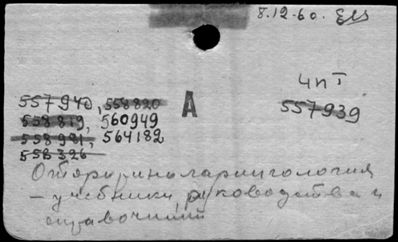 8.12-60.
ч п I
557940, 556820 А 557939
558819, 560949
558991, 564182
558326
Оториноларингология
– учебники, руководства и
справочники